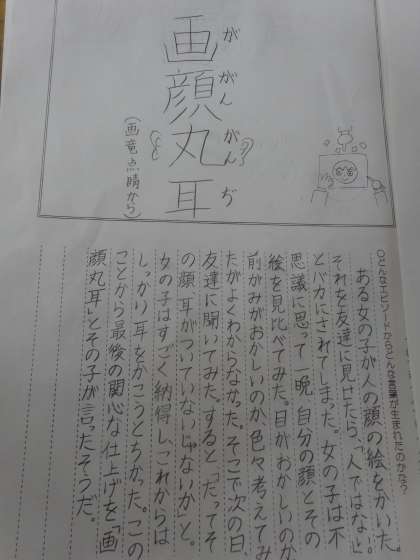 画顔丸耳
が がん がん ぢ
(画竜点晴から)
○どんなエピソードからどんな言葉が生まれたのかな？
ある女の子が人の顔の絵をかいた。
それを友達に見せたら、「人ではない」
とバカにされてしまった。女の子は不
思議に思って一晩、自分の顔とその
絵を見比べてみた。目がおかしいのか
前がみがおかしいのか、色々考えてみ
たがよくわからなかった。そこで次の日、
友達に聞いてみた。すると「だってそ
の顔、耳がついていないじゃないか」と。
女の子はすごく納得し、これからは
しっかり耳をかこうとちかった。この
ことから最後の関心な仕上げを「画
顔丸耳」とその子が言ったそうだ。